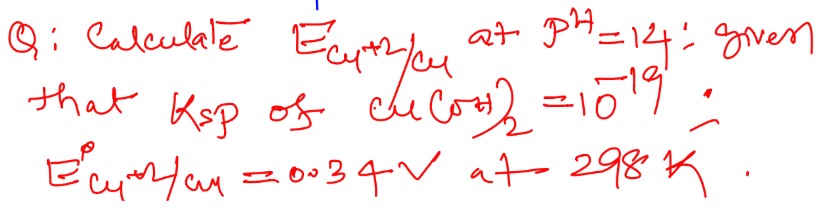 Q: Calculate E Cu+2/Cu at pH=14: given
that Ksp of Cu(OH)2 = 10^-19 :
E° Cu+2/Cu = 0.34V at 298 K.